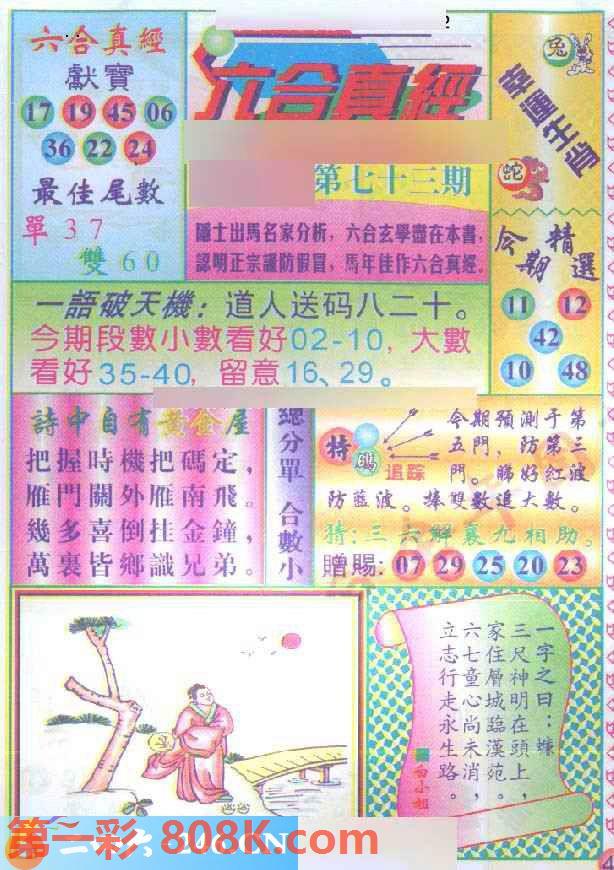 六合真經
獻寶
17 19 45 06
36 22 24
最佳尾數
單 3 7
雙 6 0
六合真經
第七十三期
隱士出馬名家分析，六合玄學盡在本書，
認明正宗謹防假冒，馬年佳作六合真經。
兔
蛇
今期精選
11 12
42
10 48
一語破天機：道人送码八二十。
今期段數小數看好02-10，大數
看好35-40，留意16、29。
詩中自有黃金屋
把握時機把碼定，
雁門關外雁南飛。
幾多喜倒挂金鐘，
萬裏皆鄉識兄弟。
總分單 合數小
特碼
追踪
今期預測于第
五門，防第三
門。睇好紅波
防藍波。捧雙數追大數。
猜：三六解裏九相助。
贈賜：07 29 25 20 23
一字之曰：
三尺神明在頭上，
家住層城臨漢苑。
六七童心尚未消，
立志行走永生路。
白小姐
第一彩 808K.com
246.CN
4